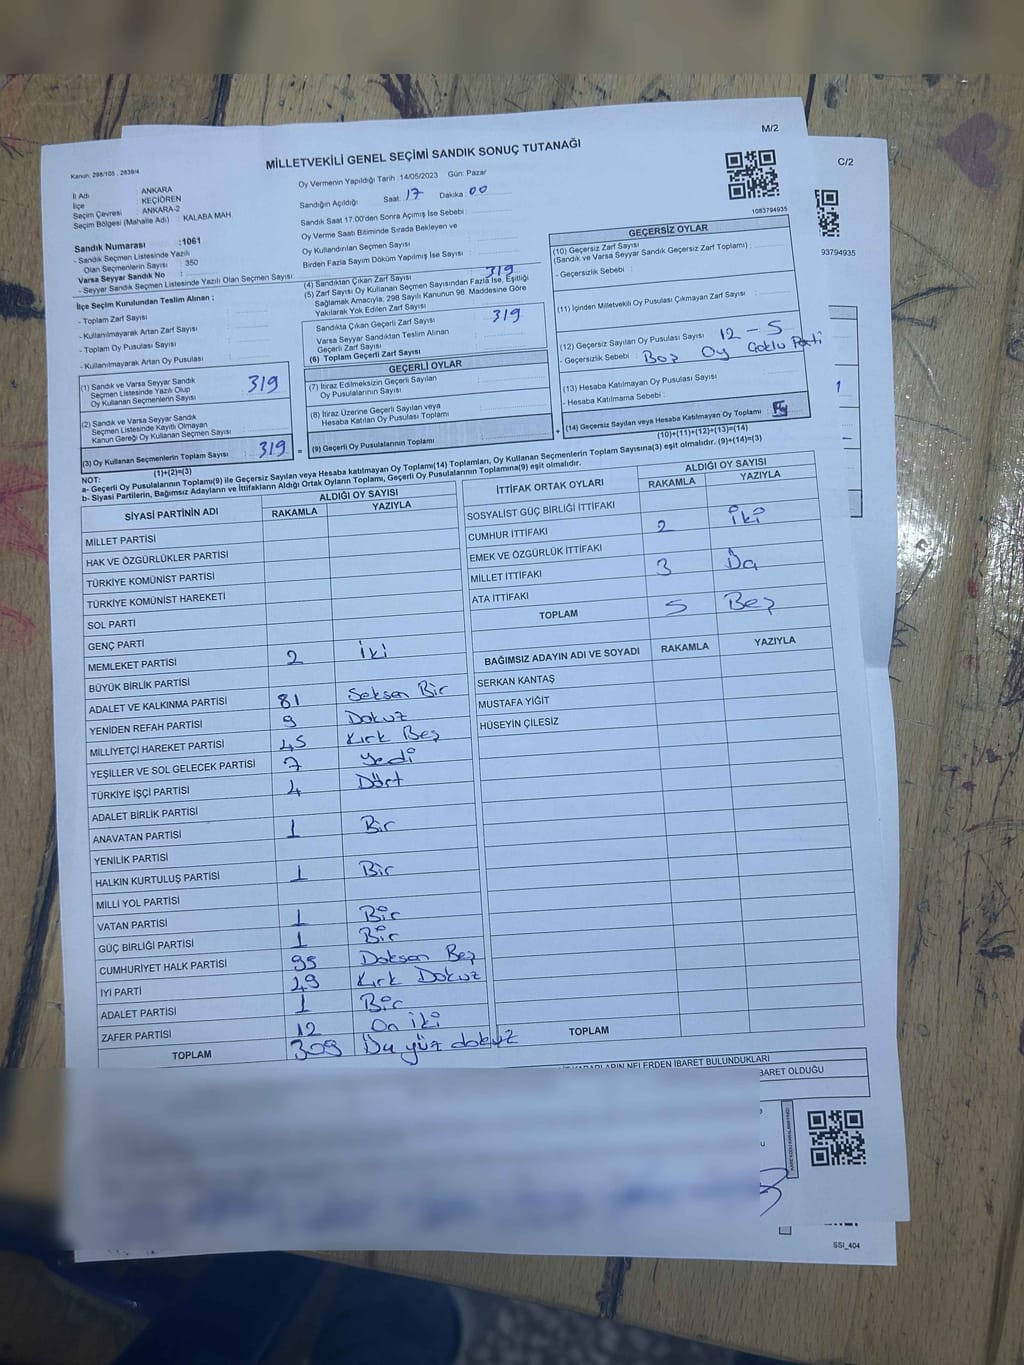 M/2
C/2
MİLLETVEKİLİ GENEL SEÇİMİ SANDIK SONUÇ TUTANAĞI
Kanun, 298/105 , 2839/4
İl Adı : ANKARA
İlçe : KEÇİÖREN
Seçim Çevresi : ANKARA-2
Seçim Bölgesi (Mahalle Adı) : KALABA MAH
Sandık Numarası :1061
- Sandık Seçmen Listesinde Yazılı
Olan Seçmenlerin Sayısı : 350
Varsa Seyyar Sandık No :
- Seyyar Sandık Seçmen Listesinde Yazılı Olan Seçmen Sayısı:
Oy Vermenin Yapıldığı Tarih :14/05/2023 Gün: Pazar
Sandığın Açıldığı Saat: 17 Dakika: 00
Sandık Saat 17.00'den Sonra Açımış İse Sebebi :
Oy Verme Saati Bitiminde Sırada Bekleyen ve
Oy Kullandırılan Seçmen Sayısı :
Birden Fazla Sayım Döküm Yapılmış İse Sayısı :
1083794935
93794935
İlçe Seçim Kurulundan Teslim Alınan ;
- Toplam Zarf Sayısı :
- Kullanılmayarak Artan Zarf Sayısı :
- Toplam Oy Pusulası Sayısı :
- Kullanılmayarak Artan Oy Pusulası :
(1) Sandık ve Varsa Seyyar Sandık
Seçmen Listesinde Yazılı Olup
Oy Kullanan Seçmenlerin Sayısı 319
(2) Sandık ve Varsa Seyyar Sandık
Listesinde Kayıtlı Olmayan
Kanun Gereği Oy Kullanan Seçmen Sayısı
(3) Oy Kullanan Seçmenlerin Toplam Sayısı 319
(1)+(2)=(3)
(4) Sandıktan Çıkan Zarf Sayısı : 319
(5) Zarf Sayısı Oy Kullanan Seçmen Sayısından Fazla İse, Eşitliği
Sağlamak Amacıyla, 298 Sayılı Kanunun 98. Maddesine Göre
Yakılarak Yok Edilen Zarf Sayısı :
Sandıkta Çıkan Geçerli Zarf Sayısı 319
Varsa Seyyar Sandıktan Teslim Alınan
Geçerli Zarf Sayısı
(6) Toplam Geçerli Zarf Sayısı
GEÇERLİ OYLAR
(7) İtiraz Edilmeksizin Geçerli Sayılan
Oy Pusulalarının Sayısı :
(8) İtiraz Üzerine Geçerli Sayılan veya
Hesaba Katılan Oy Pusulası Toplamı :
(9) Geçerli Oy Pusulalarının Toplamı
GEÇERSİZ OYLAR
(10) Geçersiz Zarf Sayısı
(Sandık ve Varsa Seyyar Sandık Geçersiz Zarf Toplamı) :
- Geçersizlik Sebebi :
(11) İçinden Milletvekili Oy Pusulası Çıkmayan Zarf Sayısı :
(12) Geçersiz Sayılan Oy Pusulası Sayısı : 12 - 5
- Geçersizlik Sebebi : Boş Oy Çoklu Parti
(13) Hesaba Katılmayan Oy Pusulası Sayısı :
- Hesaba Katılmama Sebebi :
(14) Geçersiz Sayılan veya Hesaba Katılmayan Oy Toplamı :
(10)+(11)+(12)+(13)=(14)
1
NOT:
a- Geçerli Oy Pusulalarının Toplamı(9) ile Geçersiz Sayılan veya Hesaba katılmayan Oy Toplamı(14) Toplamları, Oy Kullanan Seçmenlerin Toplam Sayısına(3) eşit olmalıdır. (9)+(14)=(3)
b- Siyasi Partilerin, Bağımsız Adayların ve İttifakların Aldığı Ortak Oyların Toplamı, Geçerli Oy Pusulalarının Toplamına(9) eşit olmalıdır.
SİYASİ PARTİNİN ADI ALDIĞI OY SAYISI
RAKAMLA YAZIYLA
MİLLET PARTİSİ
HAK VE ÖZGÜRLÜKLER PARTİSİ
TÜRKİYE KOMÜNİST PARTİSİ
TÜRKİYE KOMÜNİST HAREKETİ
SOL PARTİ
GENÇ PARTİ
MEMLEKET PARTİSİ 2 İki
BÜYÜK BİRLİK PARTİSİ
ADALET VE KALKINMA PARTİSİ 81 Seksen Bir
YENİDEN REFAH PARTİSİ 9 Dokuz
MİLLİYETÇİ HAREKET PARTİSİ 45 Kırk Beş
YEŞİLLER VE SOL GELECEK PARTİSİ 7 Yedi
TÜRKİYE İŞÇİ PARTİSİ 4 Dört
ADALET BİRLİK PARTİSİ
ANAVATAN PARTİSİ 1 Bir
YENİLİK PARTİSİ
HALKIN KURTULUŞ PARTİSİ 1 Bir
MİLLİ YOL PARTİSİ
VATAN PARTİSİ 1 Bir
GÜÇ BİRLİĞİ PARTİSİ 1 Bir
CUMHURİYET HALK PARTİSİ 95 Doksan Beş
İYİ PARTİ 49 Kırk Dokuz
ADALET PARTİSİ 1 Bir
ZAFER PARTİSİ 12 On iki
TOPLAM 309 Üç yüz dokuz
İTTİFAK ORTAK OYLARI ALDIĞI OY SAYISI
RAKAMLA YAZIYLA
SOSYALİST GÜÇ BİRLİĞİ İTTİFAKI
CUMHUR İTTİFAKI 2 İki
EMEK VE ÖZGÜRLÜK İTTİFAKI
MİLLET İTTİFAKI 3 Üç
ATA İTTİFAKI
TOPLAM 5 Beş
BAĞIMSIZ ADAYIN ADI VE SOYADI RAKAMLA YAZIYLA
SERKAN KANTAŞ
MUSTAFA YİĞİT
HÜSEYİN ÇİLESİZ
TOPLAM
KARARLARIN NELERDEN İBARET BULUNDUKLARI
BARET OLDUĞU
SSI_404